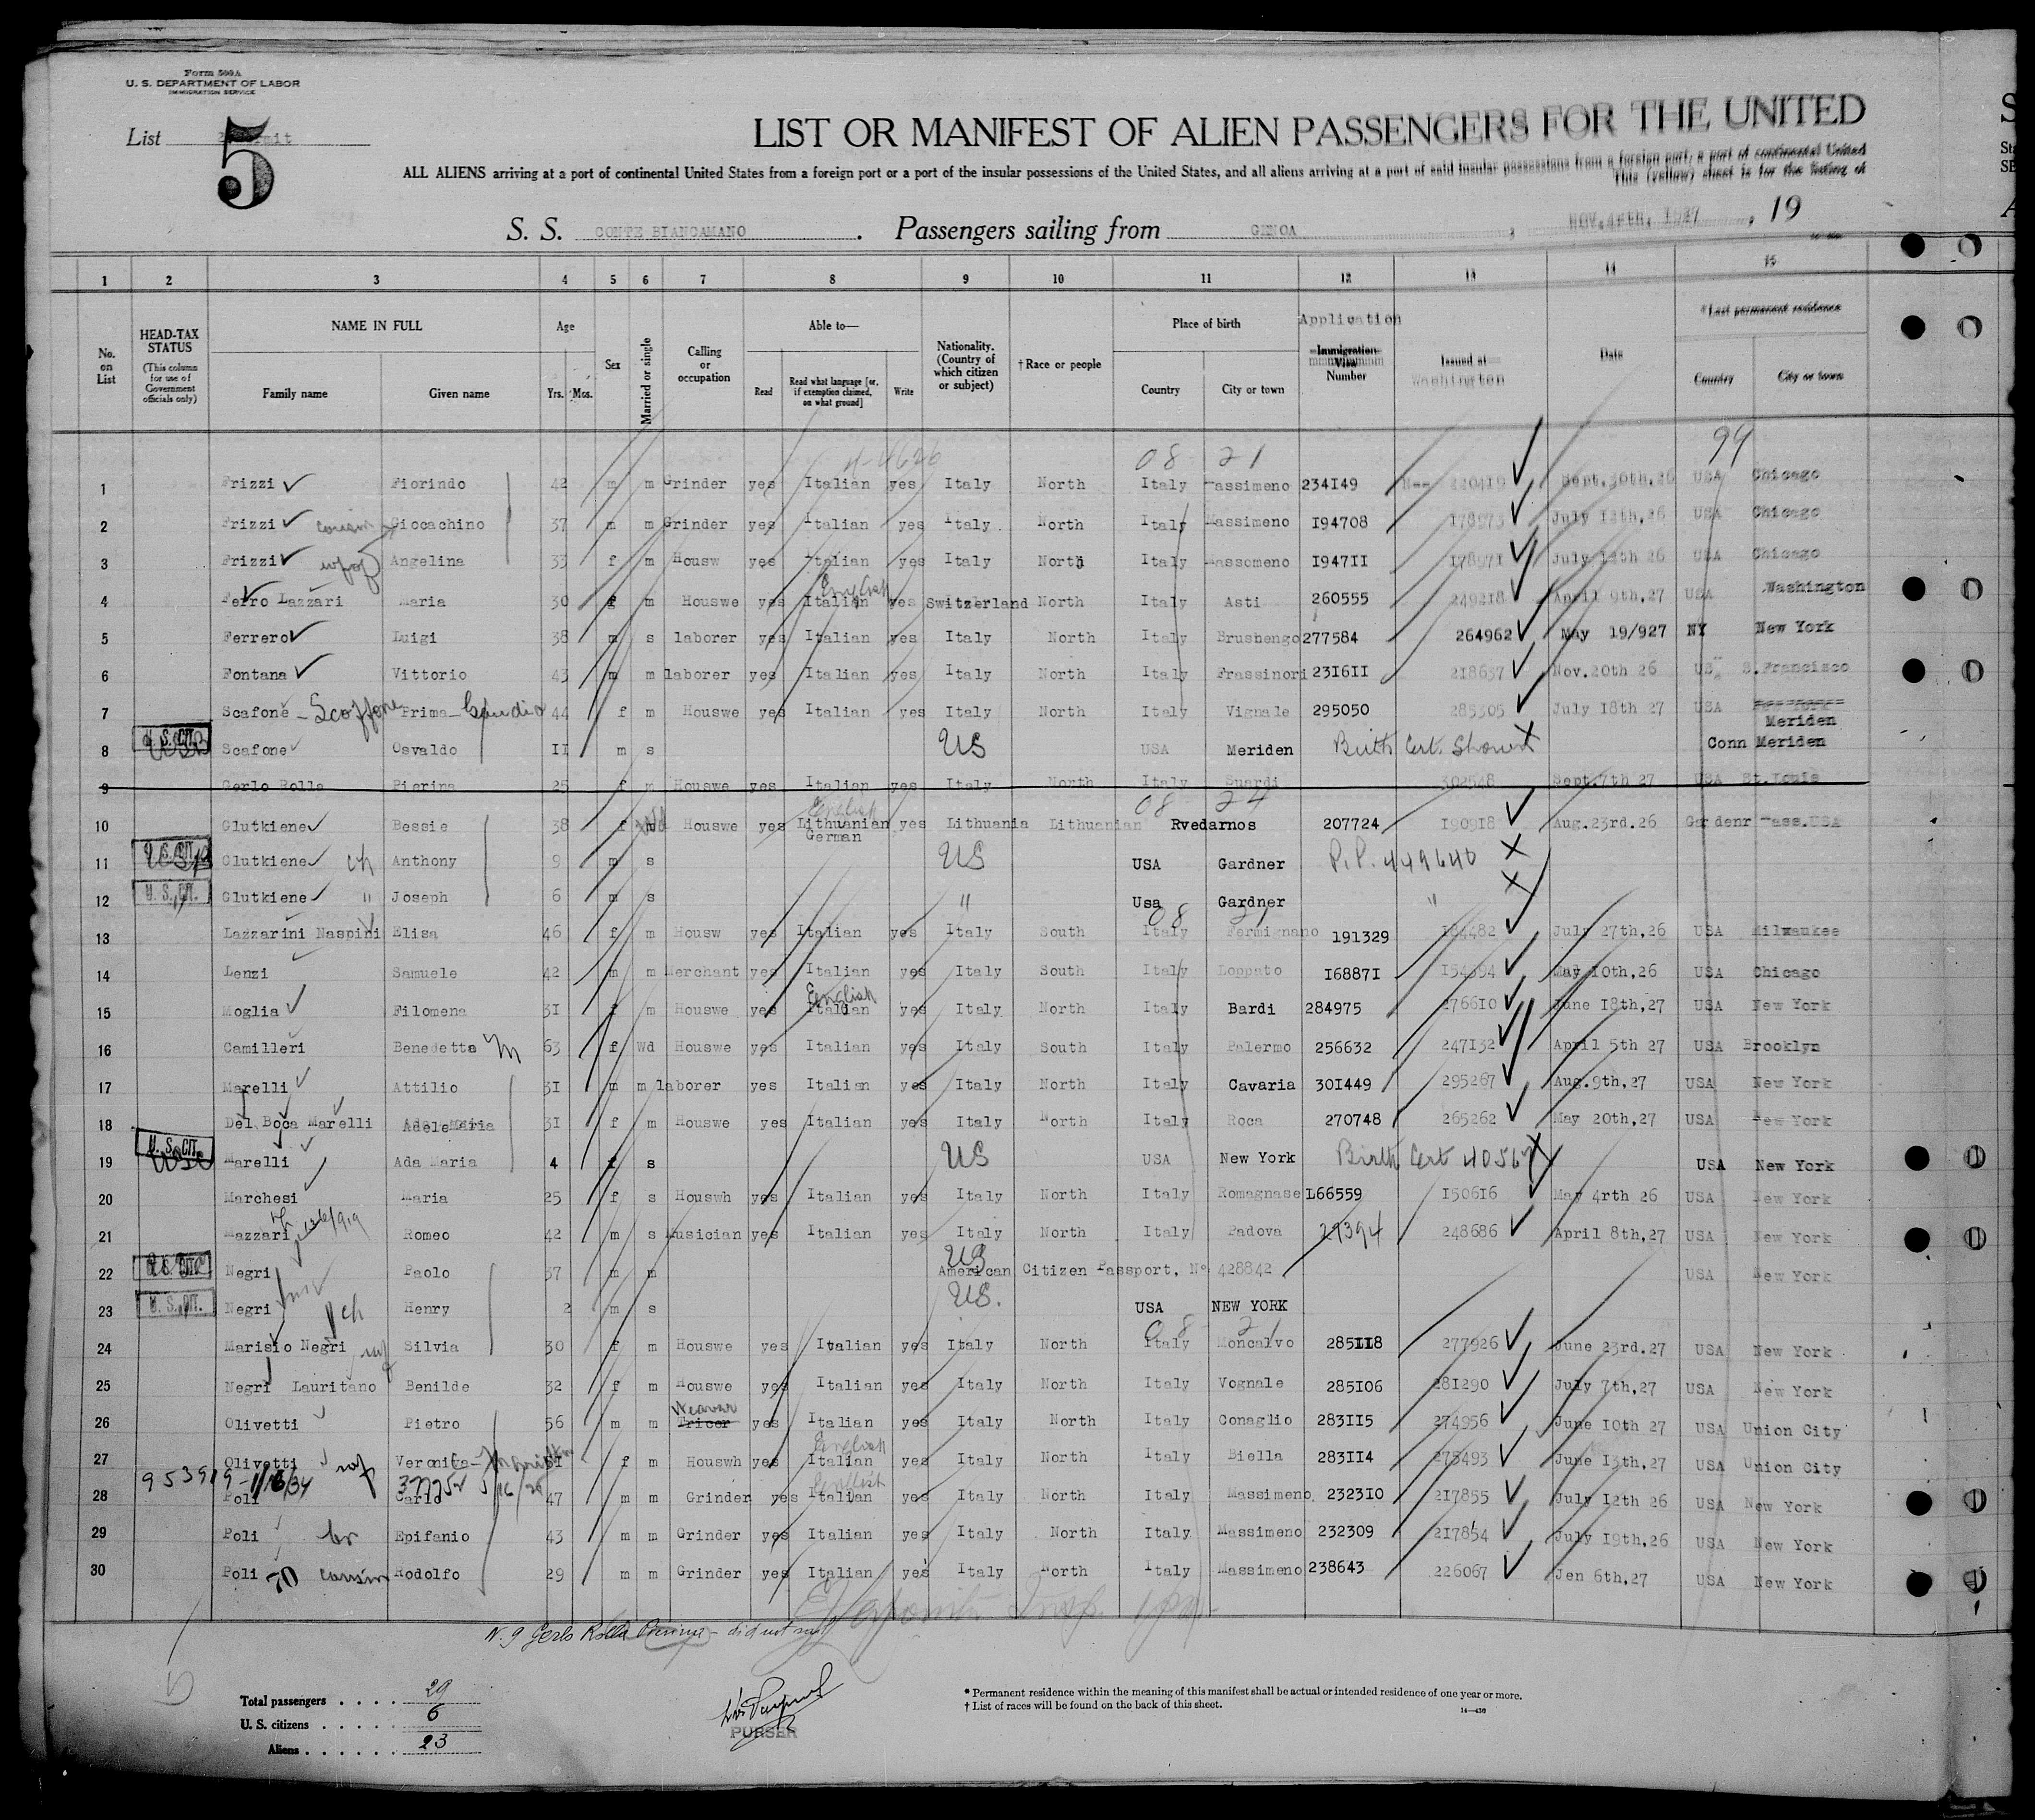 Form 500A
U. S. DEPARTMENT OF LABOR
IMMIGRATION SERVICE
List 5
LIST OR MANIFEST OF ALIEN PASSENGERS FOR THE UNITED
ALL ALIENS arriving at a port of continental United States from a foreign port or a port of the insular possessions of the United States, and all aliens arriving at a port of said insular possessions from a foreign port, a part of continental United
This (yellow) sheet is for the listing of
S. S. CONTE BIANCAMANO. Passengers sailing from GENOA, NOV. 1927, 19
1 2 3 4 5 6 7 8 9 10 11 12 13 14 15
No. on List
HEAD-TAX STATUS (This column for use of Government officials only)
NAME IN FULL Family name Given name
Age Yrs. Mos.
Sex
Married or single
Calling or occupation
Able to— Read Read what language [or, if exemption claimed, on what ground] Write
Nationality. (Country of which citizen or subject)
†Race or people
Place of birth Country City or town
Application Immigration Visa Number
Issued at Washington
Date
*Last permanent residence Country City or town
08 21 99
1 Frizzi Fiorindo 42 m m Grinder yes Italian yes Italy North Italy Massimeno 234149 220419 Sept.30th,26 USA Chicago
2 Frizzi cousin Giocachino 37 m m Grinder yes Italian yes Italy North Italy Massimeno 194708 178973 July 12th,26 USA Chicago
3 Frizzi wf of Angelina 33 f m Housw yes Italian yes Italy North Italy Massomeno 194711 178971 July 12th 26 USA Chicago
English
4 Ferro Lazzari Maria 30 f m Houswe yes Italian yes Switzerland North Italy Asti 260555 249218 April 9th,27 USA Washington
5 Ferrero Luigi 38 m s laborer yes Italian yes Italy North Italy Brushengo 277584 264962 May 19/927 NY New York
6 Fontana Vittorio 43 m m laborer yes Italian yes Italy North Italy Frassinori 231611 218637 Nov.20th 26 US S.Francisco
7 Scafone - Scoffone Prima - Claudia 44 f m Houswe yes Italian yes Italy North Italy Vignale 295050 285305 July 18th 27 USA Meriden
8 U. S. CIT. Scafone Osvaldo 11 m s US USA Meriden Birth Cert. Shown Conn Meriden
9 Gerlo Rolla Pierina 25 f m Houswe yes Italian yes Italy North Italy Suardi 302548 Sept.7th 27 USA St.Louis
English 08 24
10 Glutkiene Bessie 38 f Wd Houswe yes Lithuanian German yes Lithuania Lithuanian Rvedarnos 207724 190918 Aug.23rd.26 Gardenr Mass.USA
11 U. S. CIT. Glutkiene ch Anthony 9 m s US USA Gardner P.P. 449640
12 U. S. CIT. Glutkiene " Joseph 6 m s " Usa Gardner "
08 21
13 Lazzarini Naspini Elisa 46 f m Housw yes Italian yes Italy South Italy Fermignano 191329 184482 July 27th,26 USA Milwaukee
14 Lenzi Samuele 42 m m Merchant yes Italian yes Italy South Italy Loppato 168871 154394 May 10th,26 USA Chicago
English
15 Moglia Filomena 31 f m Houswe yes Italian yes Italy North Italy Bardi 284975 276610 June 18th,27 USA New York
16 Camilleri Benedetta 63 f Wd Houswe yes Italian yes Italy South Italy Palermo 256632 247132 April 5th 27 USA Brooklyn
17 Marelli Attilio 31 m m laborer yes Italian yes Italy North Italy Cavaria 301449 295267 Aug.9th,27 USA New York
18 Del Boca Marelli Adele Maria 31 f m Houswe yes Italian yes Italy North Italy Roca 270748 265262 May 20th,27 USA New York
19 U. S. CIT. Marelli Ada Maria 4 f s US USA New York Birth Cert 40567 USA New York
20 Marchesi Maria 25 f s Houswh yes Italian yes Italy North Italy Romagnase 166559 150616 May 4rth 26 USA New York
21 Mazzari Romeo 42 m s Musician yes Italian yes Italy North Italy Padova 29394 248686 April 8th,27 USA New York
22 Negri Paolo 37 m m US American Citizen Passport, No 428842 USA New York
23 U. S. CIT. Negri ch Henry 2 m s US. USA NEW YORK
08 21
24 Marisio Negri wf Silvia 30 f m Houswe yes Italian yes Italy North Italy Moncalvo 285118 277926 June 23rd.27 USA New York
25 Negri Lauritano Benilde 32 f m Houswe yes Italian yes Italy North Italy Vognale 285106 281290 July 7th,27 USA New York
26 Olivetti Pietro 56 m m Weaver yes Italian yes Italy North Italy Conaglio 283115 274956 June 10th 27 USA Union City
English
27 Olivetti wf Veronica f m Houswh yes Italian yes Italy North Italy Biella 283114 275493 June 13th,27 USA Union City
953919 - 1/16/34 English
28 Poli Carlo 47 m m Grinder yes Italian yes Italy North Italy Massimeno 232310 217855 July 12th 26 USA New York
29 Poli br Epifanio 43 m m Grinder yes Italian yes Italy North Italy Massimeno 232309 217854 July 19th,26 USA New York
30 Poli cousin Rodolfo 29 m m Grinder yes Italian yes Italy North Italy Massimeno 238643 226067 Jen 6th,27 USA New York
N. 9 Gerlo Rolla Pierina - did not sail
Total passengers . . . . 29
U. S. citizens . . . . . 6
Aliens . . . . . . 23
PURSER
* Permanent residence within the meaning of this manifest shall be actual or intended residence of one year or more.
† List of races will be found on the back of this sheet.
14—430